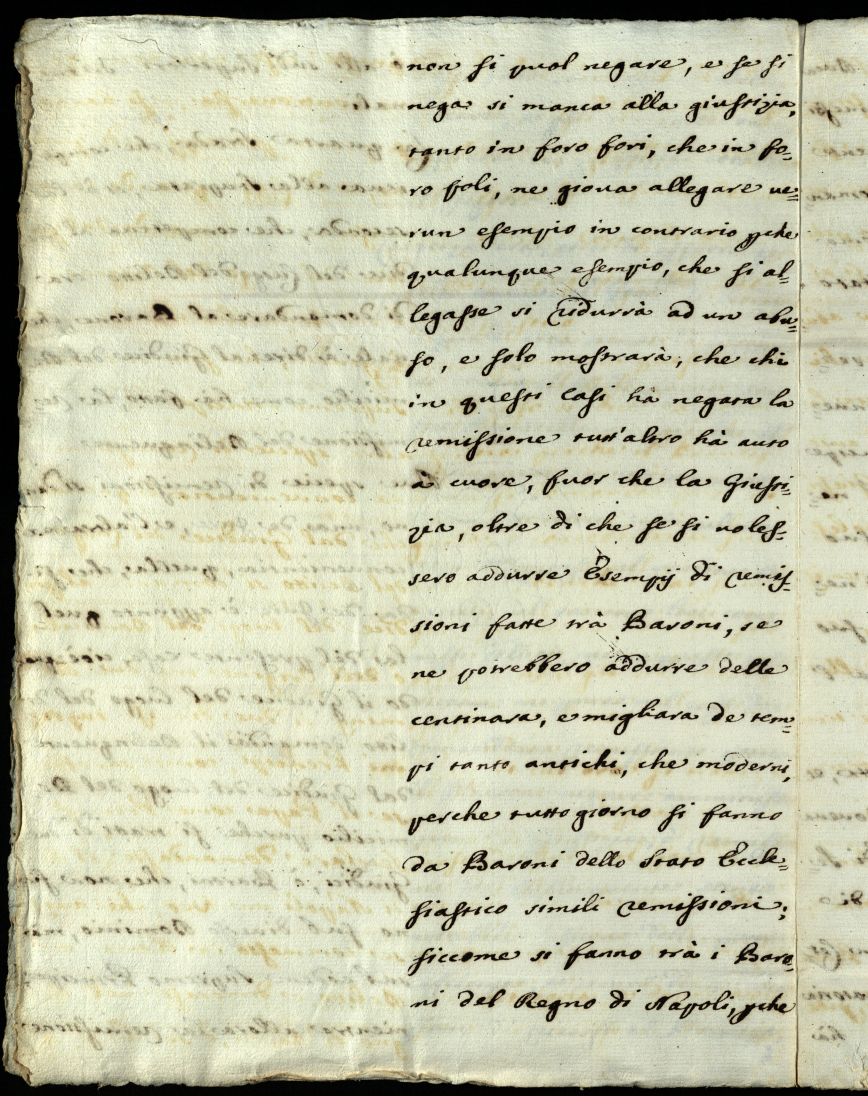 non si puol negare, e se si
nega si manca alla giustizia,
tanto in foro fori, che in fo=
ro poli, ne giova allegare ve=
run esempio in contrario pche
qualunque esempio, che si al=
legasse si ridurrà ad un abu=
so, e solo mostrarà, che chi
in questi Casi hà negata la
remissione tutt'altro hà auto
à cuore, fuor che la Giusti=
zia, oltre di che se si voles=
sero addurre Esempij di remis=
sioni fatte trà Baroni, se
ne potrebbero addurre delle
centinara, e migliara de tem=
pi tanto antichi, che moderni,
perche tutto giorno si fanno
da Baroni dello Stato Eccle=
siastico simili remissioni;
siccome si fanno trà i Baro=
ni del Regno di Napoli, pche